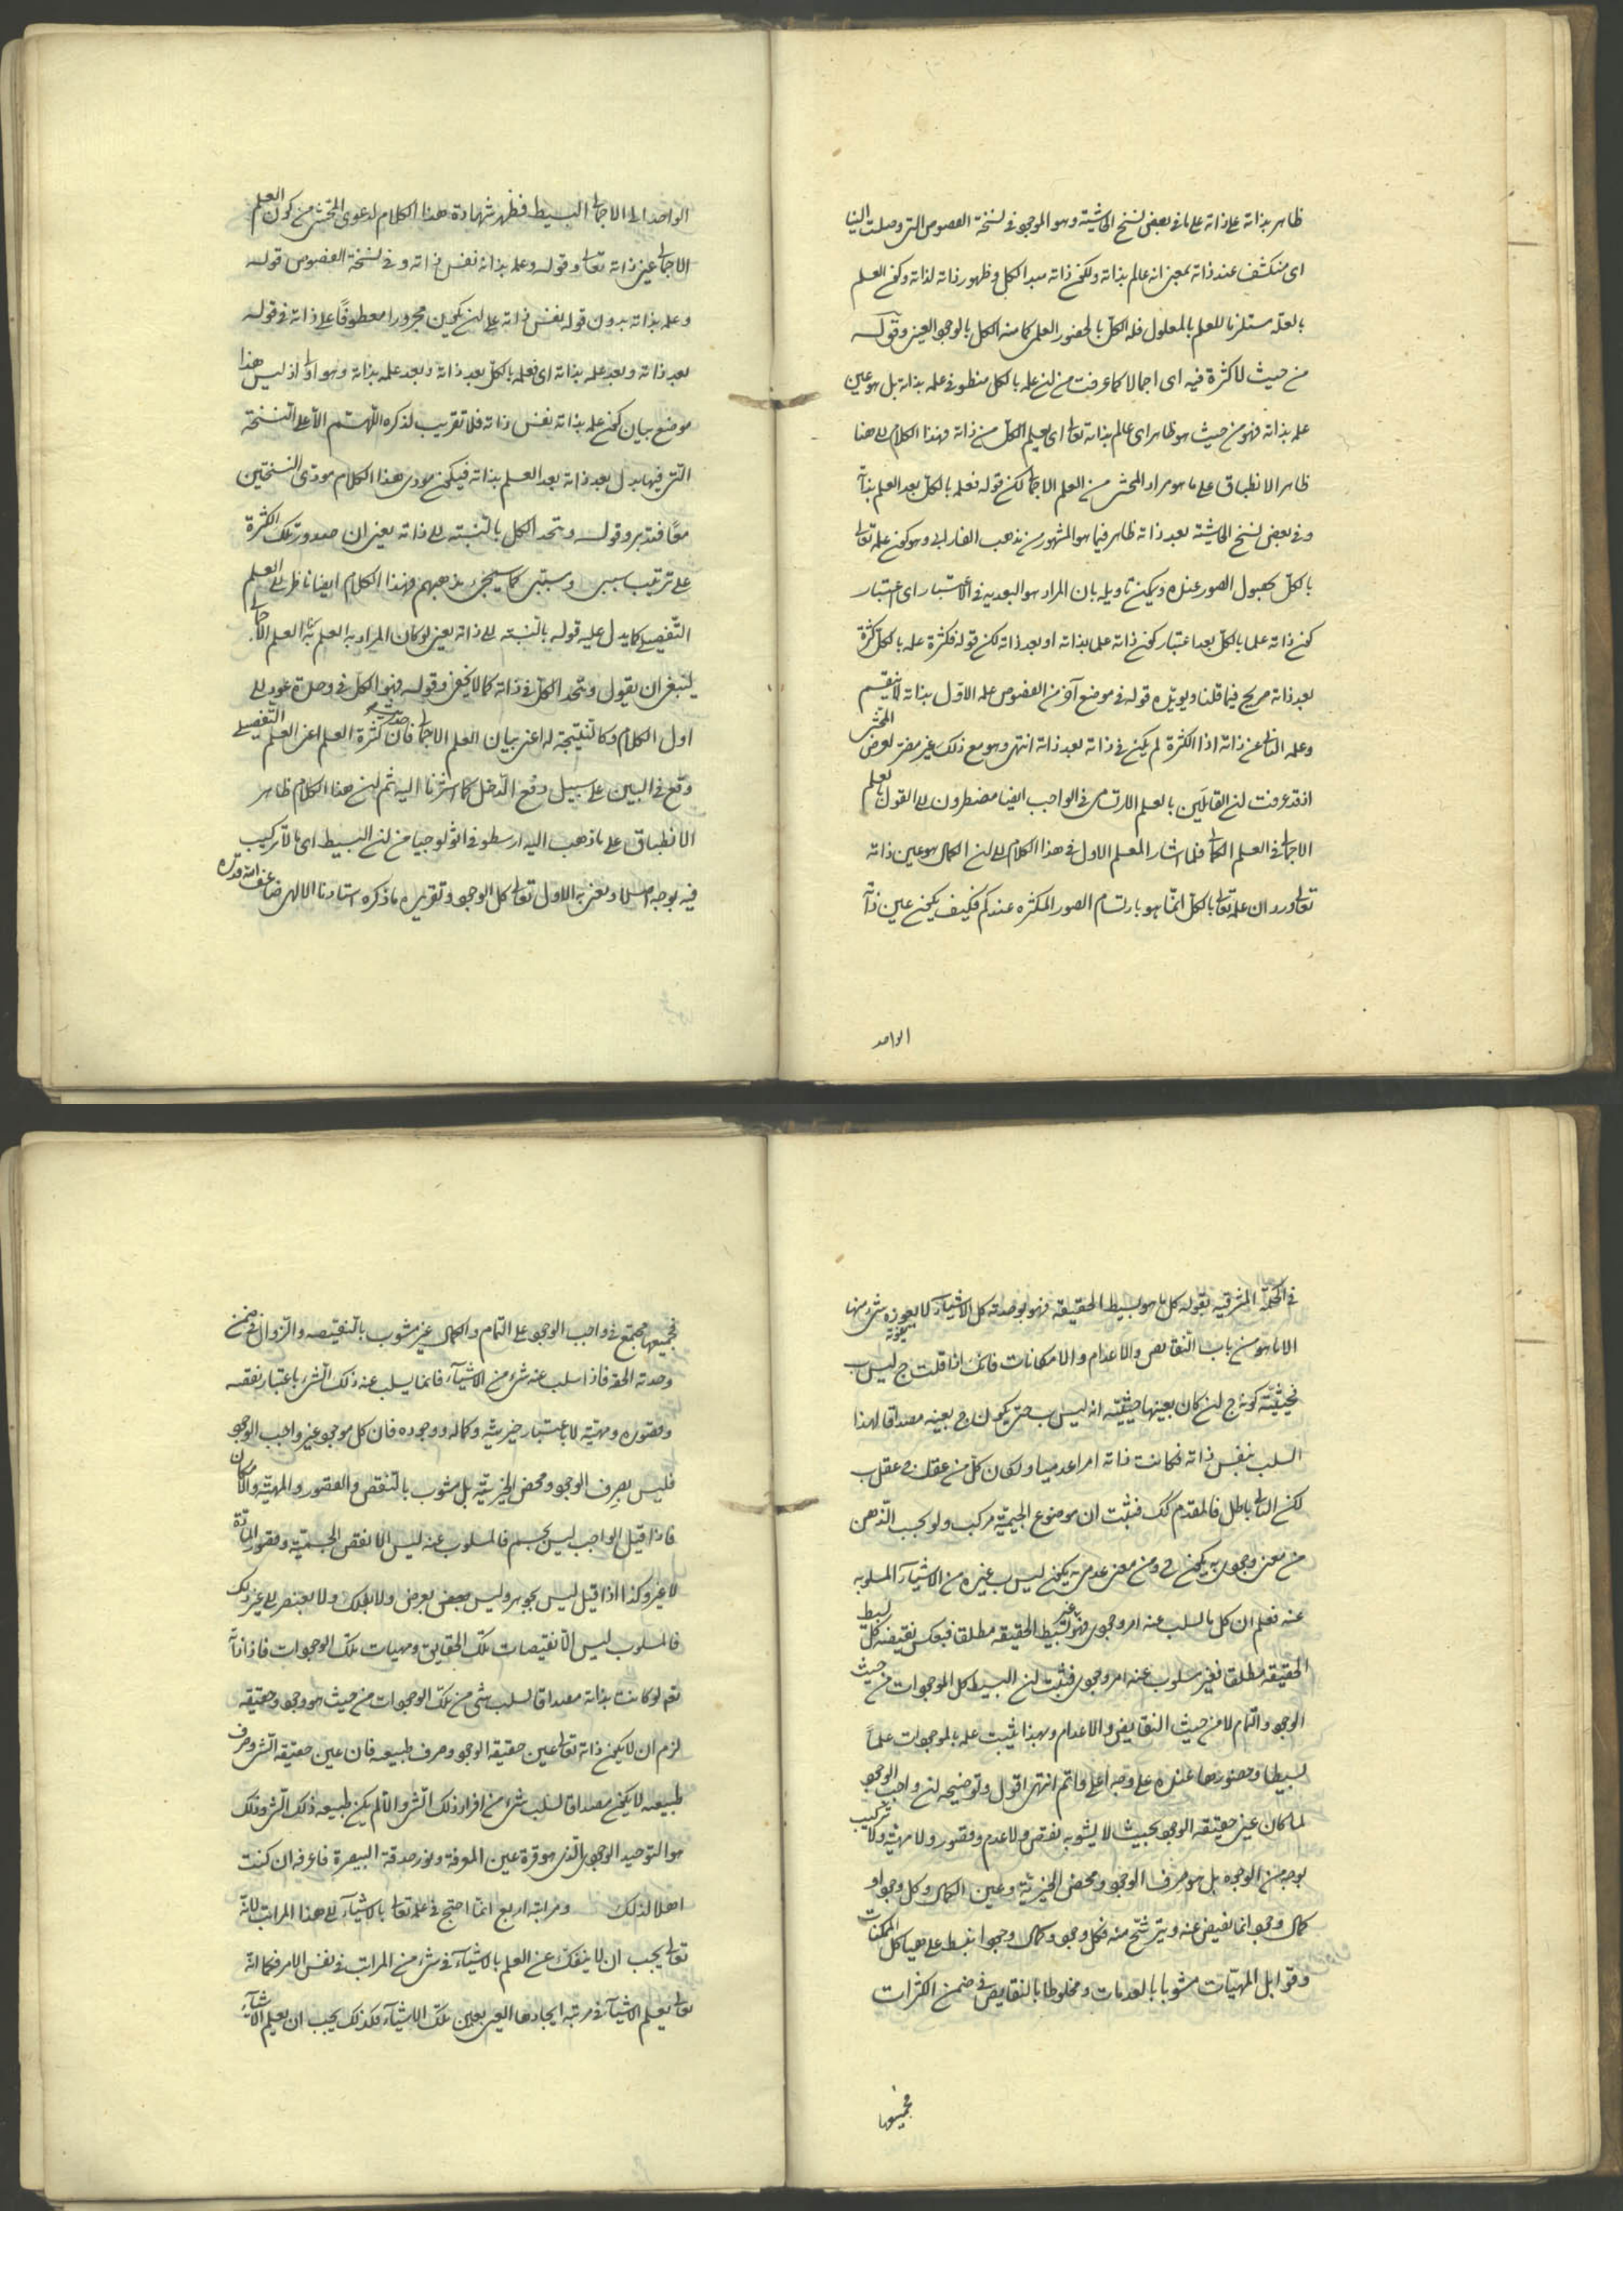 ظاهر بذاته على ذاته على ما في بعض نسخ الحاشية وهو الموجود في نسخة الفصوص التي وصلت الينا
اى منكشف عند ذاته بمعنى انه عالم بذاته ولكون ذاته مبدا الكل وظهور ذاته لذاته وكون العلم
بالعلة مستلزما للعلم بالمعلول فله الكل بالحضور العلمي كما منه الكل بالوجود العيني وقوله
من حيث لا كثرة فيه اى اجمالا كما عرفت من ان علمه بالكل منطو في علمه بذاته بل هو عين
علمه بذاته فهو من حيث هو ظاهر اى عالم بذاته تعالى اى يعلم الكل من ذاته فهذا الكلام الى هنا
ظاهر الانطباق على ما هو مراد المحشي من العلم الاجمالي لكن قوله فعلمه بالكل بعد العلم بذاته
وفي بعض نسخ الحاشية بعد ذاته ظاهر فيما هو المشهور من مذهب الفارابي وهو كون علمه تعالى
بالكل بحصول الصور عنده ويمكن تاويله بان المراد هو البعدية في الاعتبار اى اعتبار
كون ذاته علما بالكل بعد اعتبار كون ذاته علما بذاته او بعد ذاته لكن قوله فكثرة علمه بالكل كثرة
بعد ذاته صريح فيما قلنا ويؤيده قوله في موضع آخر من الفصوص علمه الاول بذاته لا ينقسم
وعلمه الثاني عن ذاته اذا الكثرة لم يكن في ذاته بعد ذاته انتهى وهو مع ذلك غير مضر لغرض المحشي
اذ قد عرفت ان القائلين بالعلم الارتسامي في الواجب ايضا مضطرون الى القول بالعلم
الاجمالي في العلم الكمالي فلما اشار المعلم الاول في هذا الكلام الى ان الكمال هو عين ذاته
تعالى ورد ان علمه تعالى بالكل انما هو بارتسام الصور المتكثره عندكم فكيف يكون عين ذاته
الواحد
الواحد الى الاجمالي البسيط فظهر شهادة هذا الكلام لدعوى المحشي من كون العلم
الاجمالي عين ذاته تعالى وقوله وعلمه بذاته نفس ذاته وفي نسخة الفصوص قوله
وعلمه بذاته بدون قوله نفس ذاته على ان يكون مجرورا معطوفًا على ذاته في قوله
بعد ذاته وبعد علمه بذاته اى فعلمه بالكل بعد ذاته وبعد علمه بذاته وهو اولى اذ ليس هذا
موضع بيان كون علمه بذاته نفس ذاته فلا تقريب لذكره اللهم الا على النسخة
التي فيها بدل بعد ذاته بعد العلم بذاته فيكون مودى هذا الكلام مودى النسختين
معًا فتدبر وقوله ويتحد الكل بالنسبة الى ذاته يعني ان صدور تلك الكثرة
على ترتيب سببي ومسببي كما سيجيء مذهبهم فهذا الكلام ايضا ناظر الى العلم
التفصيلي كما يدل عليه قوله بالنسبة الى ذاته يعني لو كان المراد به العلم العلم الاجمالي
لينبغي ان يقول ويتحد الكل في ذاته كما لا يخفى وقوله فهو الكل في وحدة عود الى
اول الكلام وكالنتيجة له اعنى بيان العلم الاجمالي فان حديث كثرة العلم اعنى العلم التفصيلي
وقع في البين على سبيل دفع الدخل كما اشرنا اليه ثم ان هذا الكلام ظاهر
الانطباق على ما ذهب اليه ارسطو في اثولوجيا من ان البسيط اى ما لا تركيب
فيه بوجه اصلا ويعنى به الاول تعالى كل الوجود وتقريره ما ذكره استادنا الالهي
في الحكمة المشرقيه بقوله كل ما هو بسيط الحقيقه فهو بوحدته كل الاشياء لا يعوزه شيء منها
الا ما هو من باب النقايص والاعدام والامكانات فانك اذا قلت ج ليس ب
فحيثية كونه ج ان كان بعينها حيثية انه ليس ب حتى يكون ج بعينه مصداقا لهذا
السلب بنفس ذاته فكانت ذاته امرا عدميا ولكان كل من عقل ج عقل ليس ب
لكن التالي باطل فالمقدم كك فثبت ان موضوع الجيمية مركب ولو بحسب الذهن
من معنى وجودي به يكون ج ومن معنى عدمي به يكون ليس ب وغيره من الاشياء المسلوبه
عنه فعلم ان كل ما سلب عنه امر وجودي فهو غير بسيط الحقيقه مطلقا فبعكس نقيضه كل بسيط
الحقيقه مطلقا فغير مسلوب عنه امر وجودي فثبت ان البسيط كل الموجودات من حيث
الوجود والتمام لا من حيث النقايص والاعدام وبهذا يثبت علمه بالموجودات علماً
بسيطا وحضورها عنده على وجه اعلى واتم انتهى اقول وتوضيحه ان واجب الوجود
لما كان عين حقيقه الوجود بحيث لا يشوبه نقص ولا عدم وقصور ولا مهية ولا تركيب
بوجه من الوجوه بل هو صرف الوجود ومحض الخيرية وعين الكمال وكل وجود او
كمال وجود انما يفيض عنه ويترشح منه فكل وجود وكمال وجود انبسط على هياكل الممكنات
وقوابل المهيات مشوبا بالعدمات ومخلوطا بالنقايص في ضمن الكثرات
فجميعها
فجميعها مجتمع في واجب الوجود على التمام والكمال غير مشوب بالنقيصه والزوال في ضمن
وحدته الحقه فاذا سلب عنه شيء من الاشياء فانما يسلب عنه ذلك الشيء باعتبار نقصه
وقصوره ومهيته لا باعتبار خيريته وكماله ووجوده فان كل موجود غير واجب الوجود
فليس بصرف الوجود ومحض الخيرية بل مشوب بالنقص والقصور والمهية والامكان
فاذا قيل الواجب ليس بجسم فالمسلوب عنه ليس الا نقص الجسمية وقصور المادة
لا غير وكذا اذا قيل ليس بجوهر وليس بعرض ولا بفلك ولا بعنصر الى غير ذلك
فالمسلوب ليس الا نقيصات تلك الحقايق ومهيات تلك الوجودات
نعم لو كانت بذاته مصداقا لسلب شيء من تلك الوجودات من حيث هو وجود وحقيقه
لزم ان لا يكون ذاته تعالى عين حقيقه الوجود وصرف طبيعته فان عين حقيقه الشيء وصرف
طبيعته لا يكون مصداقا لسلب شيء من افراد ذلك الشيء والا لم يكن طبيعه ذلك الشيء وذلك
هو التوحيد الوجودي الذي هو قرة عين المعرفة ونور حدقة البصيرة فاعرفه ان كنت
اهلا لذلك ومراتبه اربع انما احتج في علمه تعالى بالاشياء الى هذا المراتب لانه
تعالى يجب ان لا ينفك عن العلم بالاشياء في شيء من المراتب في نفس الامر فكما انه
تعالى يعلم الاشياء في مرتبه ايجادها العيني بعين تلك الاشياء فكذلك يجب ان يعلم الاشياء